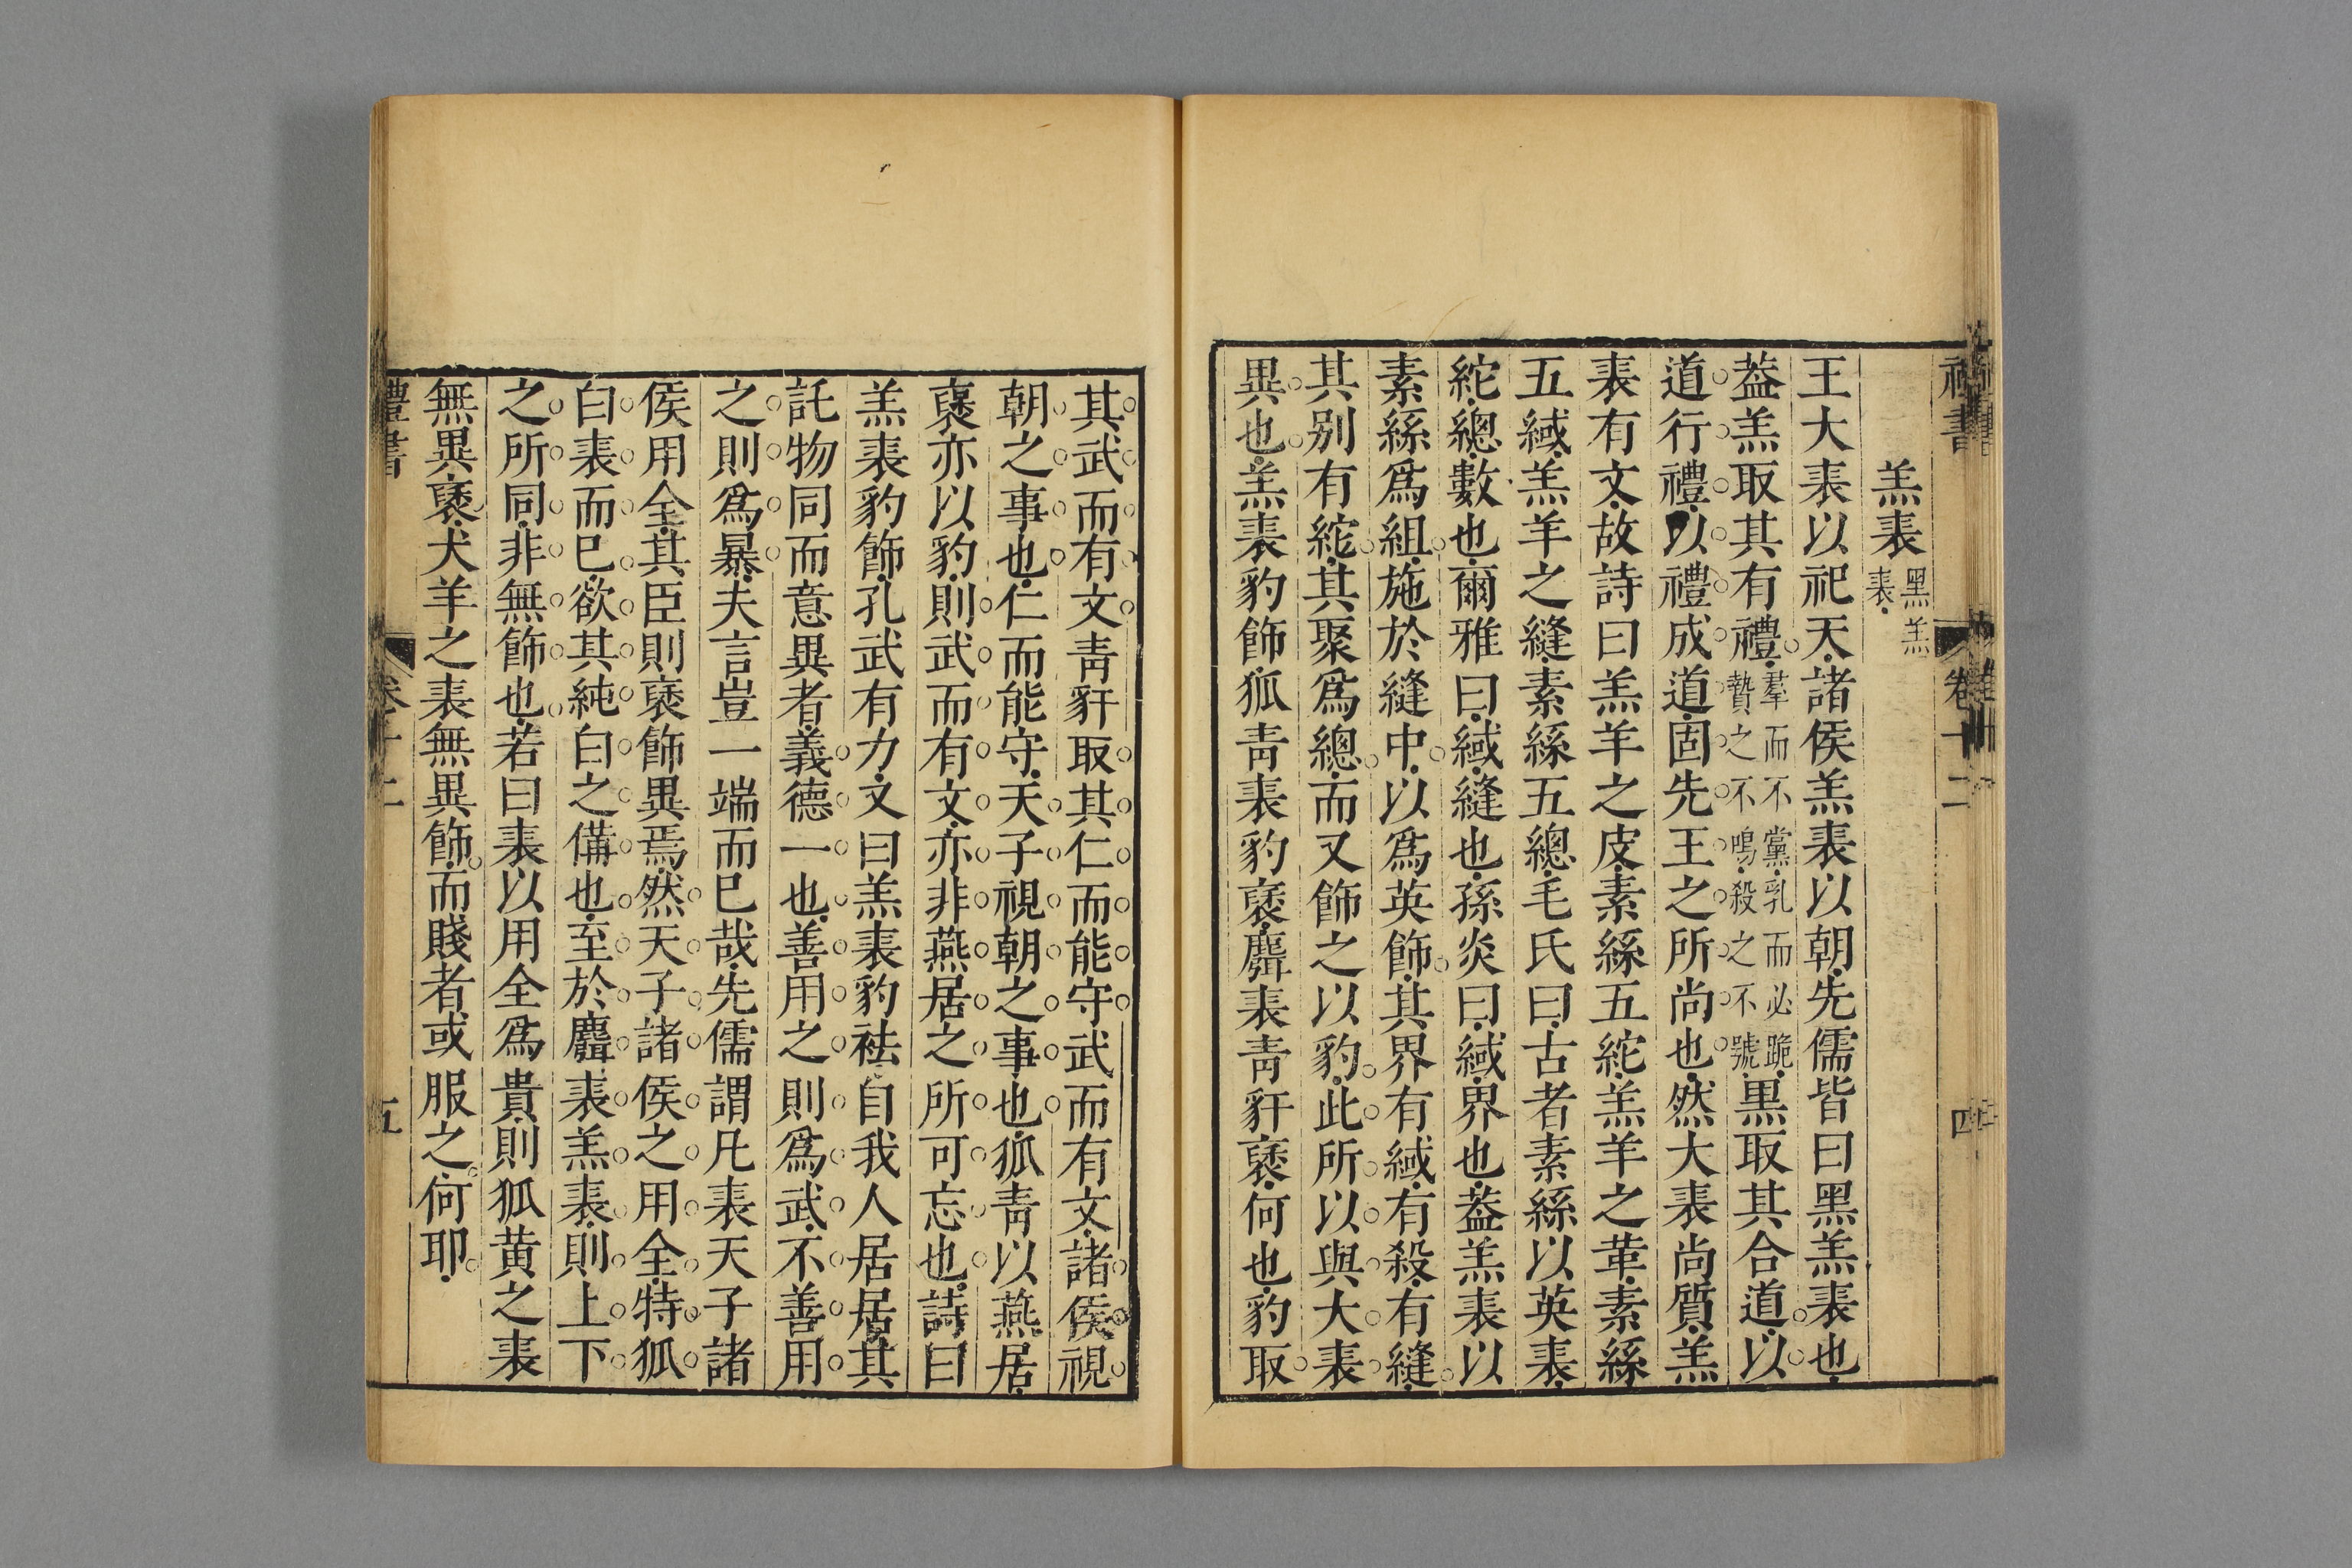 禮書 卷十二 四
羔裘黑羔裘
王大裘以祀天諸侯羔裘以朝先儒皆曰黑羔裘也
葢羔取其有禮羣而不黨乳而必跪贄之不鳴殺之不號黑取其合道以
道行禮以禮成道固先王之所尚也然大裘尚質羔
裘有文故詩曰羔羊之皮素絲五紽羔羊之革素絲
五緎羔羊之縫素絲五總毛氏曰古者素絲以英裘
紽總數也爾雅曰緎縫也孫炎曰緎界也葢羔裘以
素絲爲組施於縫中以爲英飾其界有緎有殺有縫
其別有紽其聚爲總而又飾之以豹此所以與大裘
異也羔裘豹飾狐靑裘豹褎麛裘靑豻褎何也豹取
其武而有文靑豻取其仁而能守武而有文諸侯視
朝之事也仁而能守天子視朝之事也狐靑以燕居
褎亦以豹則武而有文亦非燕居之所可忘也詩曰
羔裘豹飾孔武有力文曰羔裘豹袪自我人居居其
託物同而意異者義德一也善用之則爲武不善用
之則爲暴夫言豈一端而已哉先儒謂凡裘天子諸
侯用全其臣則褎飾異焉然天子諸侯之用全特狐
白裘而已欲其純白之備也至於麛裘羔裘則上下
之所同非無飾也若曰裘以用全爲貴則狐黃之裘
無異褎犬羊之裘無異飾而賤者或服之何耶
禮書 卷十二 五